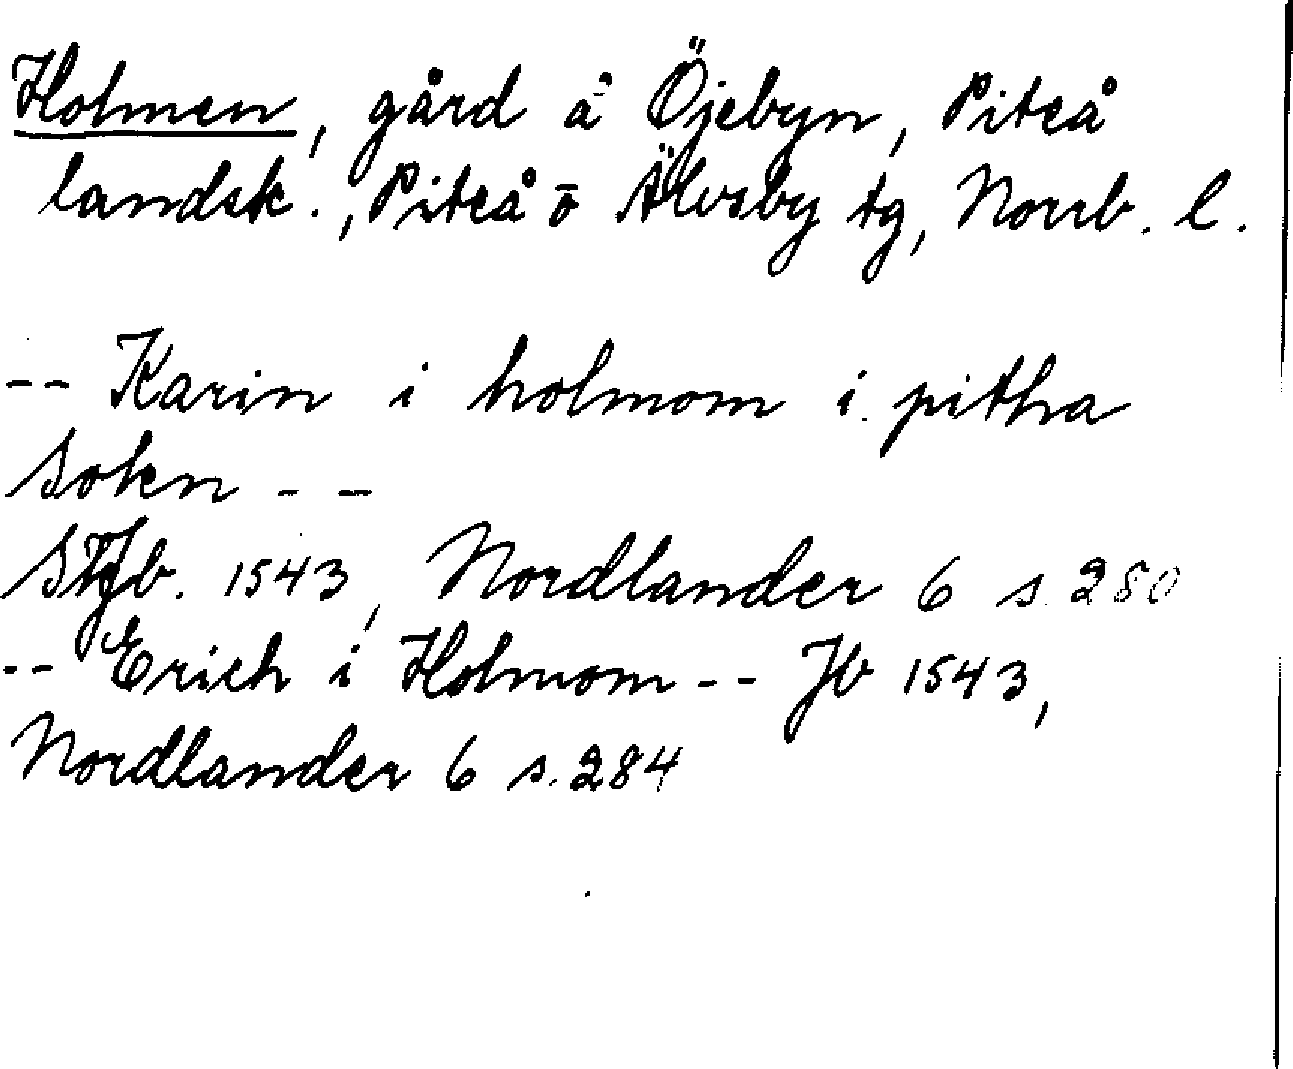 Holmen, gård å Öjebyn, Piteå
landsk., Piteå o Älvsby tg, Norrb. l.
-- Karin i holmom i pitha
Sokn --
Stjb. 1543, Nordlander 6 s. 280
-- Erich i Holmom -- Jb 1543,
Nordlander 6 s. 284